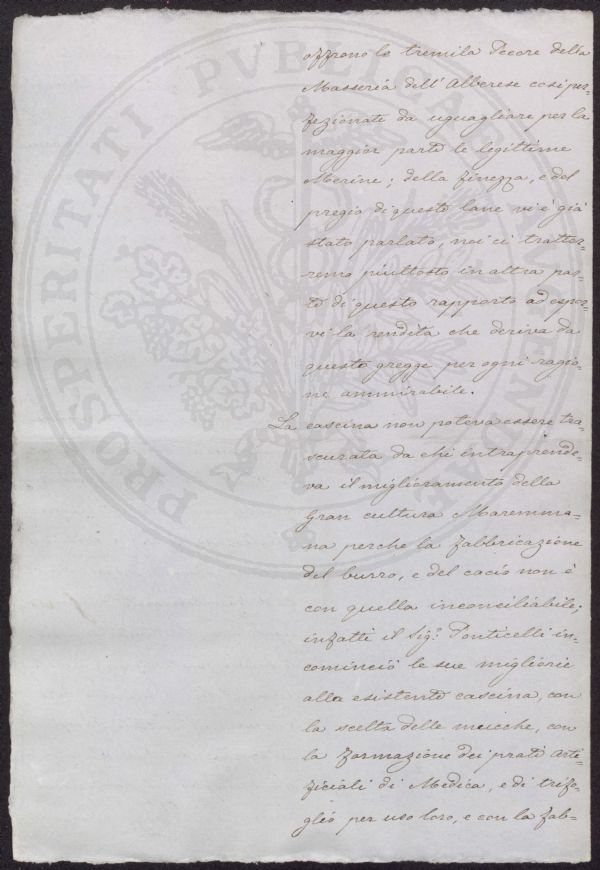 PROSPERITATI PVBLICAE AVGENDAE
offrono le tremila Pecore della
Masseria dell'Alberese così per=
fezionate da uguagliare per la
maggior parte le legittime
Merine; della finezza, e del
pregio di queste lane vi è già
stato parlato, noi ci tratter=
remo piuttosto in altra par=
te di questo rapporto ad espor=
vi la rendita che deriva da
questo gregge per ogni ragio=
ne ammirabile.
La cascina non poteva essere tra=
scurata da chi intraprende=
va il miglioramento della
Gran cultura Maremma=
na perche la fabbricazione
del burro, e del cacio non è
con quella inconciliabile;
infatti il Sig.r Ponticelli in=
cominciò le sue migliorie
alla esistente cascina, con
la scelta delle mucche, con
la formazione dei prati arti=
ficiali di Medica, e di trifo=
glio per uso loro, e con la fab=